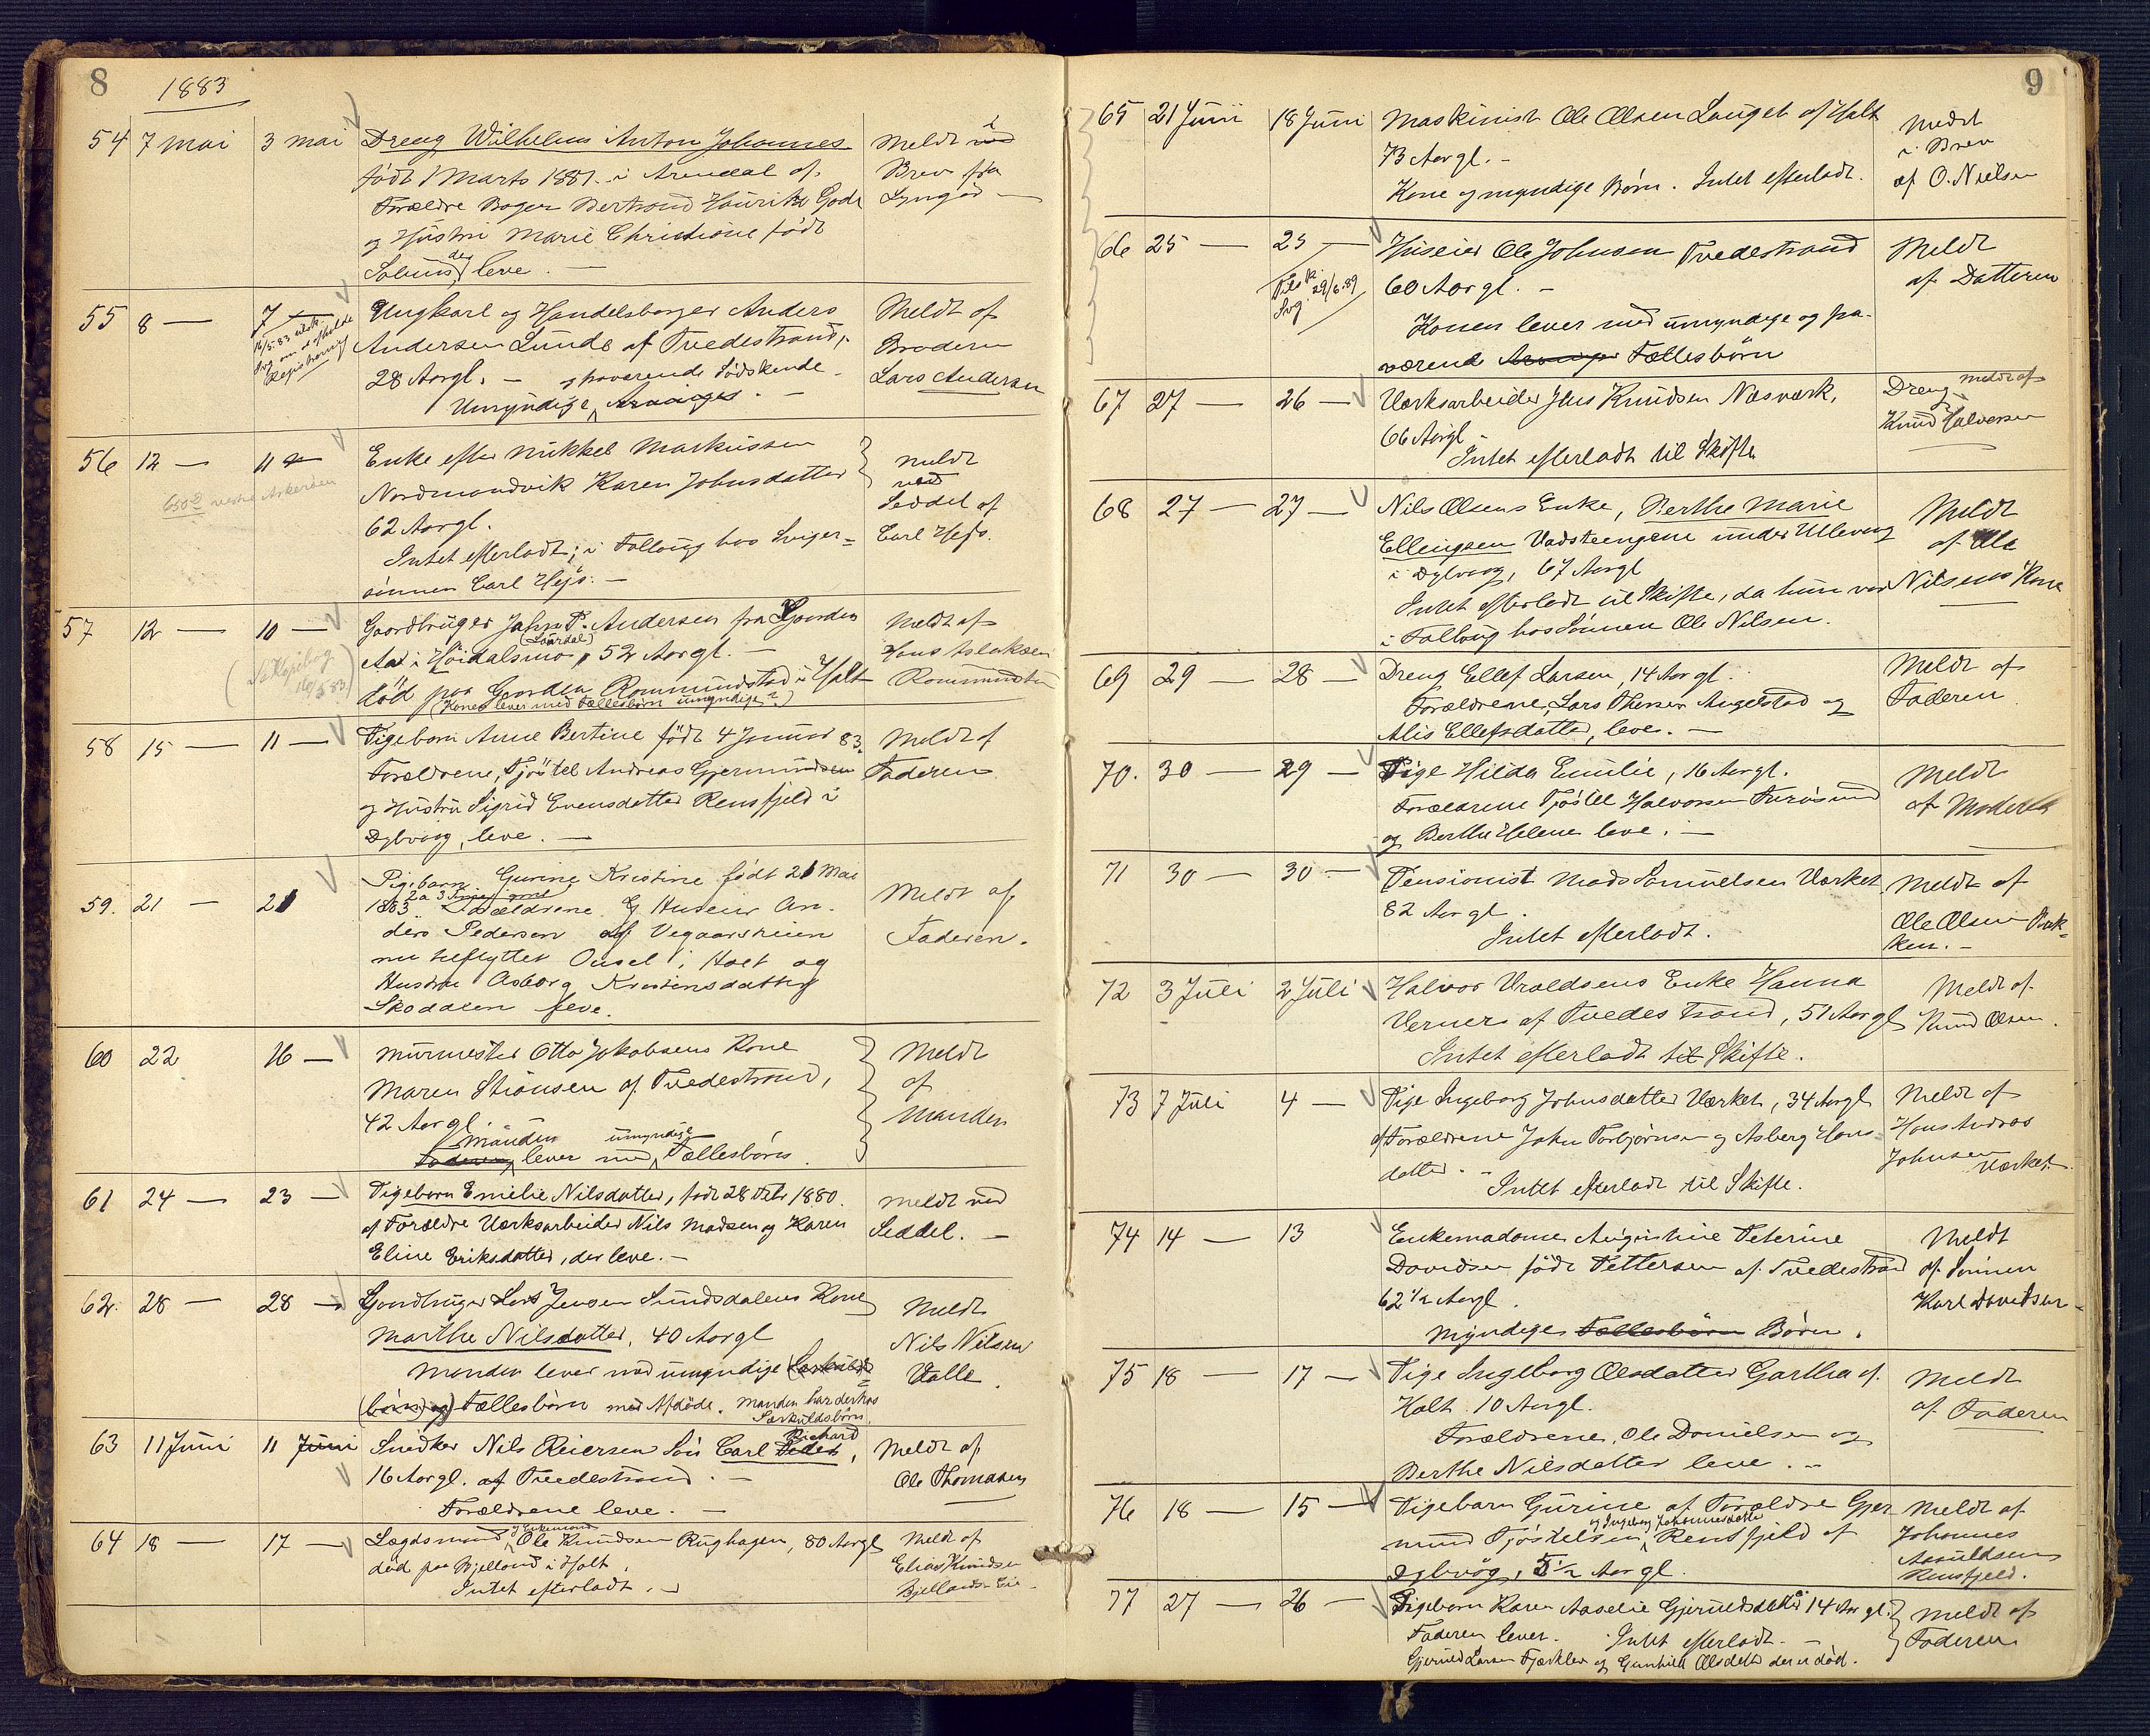 8
1883
54 7 mai 3 mai Dreng Wilhelm Anton Johannes Meldt i
født 1 Marts 1881 i Arendal af Brev fra
Forældre Bager Bertrand Hinrik Lyngør
og Hustru Marie Christine født
der leve. —
55 8 — 7 — Ungkarl og Handelsborger Anders Meldt af
Andersen Lunde af Tvedestrand, Broderen
28 Aar gl. — og fraværende Södskende Lars Andersen
Umyndige Arvinger. —
16/5.83 tilsk.
Registrering
56 12 — 11 — Enke efter Mikkel Markussen Meldt
Nordmandvik Karen Johnsdatter ved
62 Aar gl. Seddel af
Intet efterladt; i Fallaug hos Sviger= Carl Hejs.
sönnen Carl Hejs. —
57 12 — 10 — Gaardbruger John P. Andersen fra Gaarden Meldt af
(Laurdal)
Aa i Höidalsmo, 52 Aar gl. — Hans Aslaksen
död paa Gaarden Rommundstad i Holt
(Konen lever med Fællesbörn umyndige?)
58 15 — 11 — Pigebarn Anne Bertine født 4 Januar 83. Meldt af
Forældrene, Tjöstel Andreas Gjermundsen Faderen
og Hustru Sigrid Evensdatter Rensfjeld i
Dybvaag, leve. —
59. 21 — 21 Pigebarn Gurine Kristine født 21 Mai Meldt af
1883 Forældrene Husein An- Faderen.
ders Pedersen af Vegaarsheien
nu tilflyttet Ousel i Holt og
Hustru Asborg Kristensdatter
Skoddalen leve.
60 22 16 — Murmester Otto Jakobsens Kone Meldt
Maren Stiansen af Tvedestrand, af
42 Aar gl. Manden
Manden umyndige
Faderen lever med Fællesbörn.
61 24 — 23 — Pigebarn Emelie Nilsdatter, født 28 1880. Meldt ved
af Forældre Værksarbeider Nils Madsen og Karen Seddel. —
Eline Eriksdatter, der leve. —
62. 28 — 28 — Gaardbruger Lars Jensen Sundsdalens Kone Meldt
Marthe Nilsdatter, 40 Aar gl Nils Nilsen
Manden lever med umyndige (Særkulds= Valle.
börn og) Fællesbörn med Afdöde. Manden har derhos
Særkuldsbörn.
63 11 Juni 11 Juni Snedker Nils Reiersen Sön Carl Richard, Meldt af
16 Aar gl. af Tvedestrand. — Ole Thomasen
Forældrene leve. —
64 18 — 17 — Lægdsmand og Enkemand Ole Knudsen Rughagen, 80 Aar gl Meldt af
död paa Bjelland i Holt. Elias Knudsen
Intet efterladt. — Bjellands Eie
9
65 21 Juni 18 Juni Maskinist Ole Olsen Lauget af Holt Meldt
73 Aar gl. — i Brev
Kone og myndige Börn. Intet efterladt. af O. Nielsen
66 25 — 23 — Huseier Ole Johnsen Tvedestrand Meldt
60 Aar gl. — af Datteren
Konen lever med umyndige og fra-
værend Arvinger Fællesbörn
67 27 — 26 — Værksarbeider Jens Knudsen Næsværk, Dreng Meldt af
66 Aar gl Knud Halvorsen
Intet efterladt til Skifte
68 27 — 27 — Nils Olsens Enke, Berthe Marie Meldt
Ellingsen Vadsteengene under Ulevaag af Ole
i Dybvaag, 67 Aar gl Nilsens Kone
Intet efterladt til Skifte, da hun var
i Fallaug hos Sönnen Ole Nilsen.
69 29 — 28 — Dreng Ellef Larsen, 14 Aar gl. Meldt af
Forældrene, Lars Thersen Angelstad og Faderen
Alis Ellefsdatter, lever. —
70. 30 — 29 — Pige Hilda Emilie, 16 Aar gl. Meldt
Forældrene Tjöstel Halvorsen Furösund af Moderen
og Berthe Helene leve. —
71 30 — 30 — Pensionist Mads Samuelsen Værket Meldt af
82 Aar gl. Ole Olsen
Intet efterladt.
72 3 Juli 2 Juli Halvor Vraldsens Enke Hanna Meldt af
Verner af Tvedestrand, 51 Aar gl Knud Olsen.
Intet efterladt til Skifte.
73 7 Juli 4 — Pige Ingeborg Johnsdatter Værket, 34 Aar gl Meldt af
af Forældrene John Torbjörnsen og Asberg Hans= Hans Andreas
datter. — Johnsen Værket.
Intet efterladt til Skifte.
74 14 — 13 Enkemadame Augustine Peterine Meldt
Davidsen född Pettersen af Tvedestrand af Sönnen
62 1/2 Aar gl. Karl Davidsen
Myndige Fællesbörn Börn.
75 18 — 17 — Pige Ingeborg Olesdatter Gartha af Meldt
Holt. 10 Aar gl. af Faderen
Forældrene, Ole Danielsen og
Berthe Nilsdatter leve. —
76 18 — 15 — Pigebarn Gurine af Forældre Gjer- Meldt af
og Ingeborg Johannesdatter
mund Tjöstelsen, Rensfjeld af Johannes
Dybvåg, 5 1/2 Aar gl. Aanuldsen
Rensfjeld.
77 27 — 26 — Pigebarn Karen Aaselie Gjeruldsdatter 14 Aar gl. Meldt af
Faderen lever. Intet efterladt. — Faderen
Gjeruld Larsen og Gunhild Olsdatter der er död.